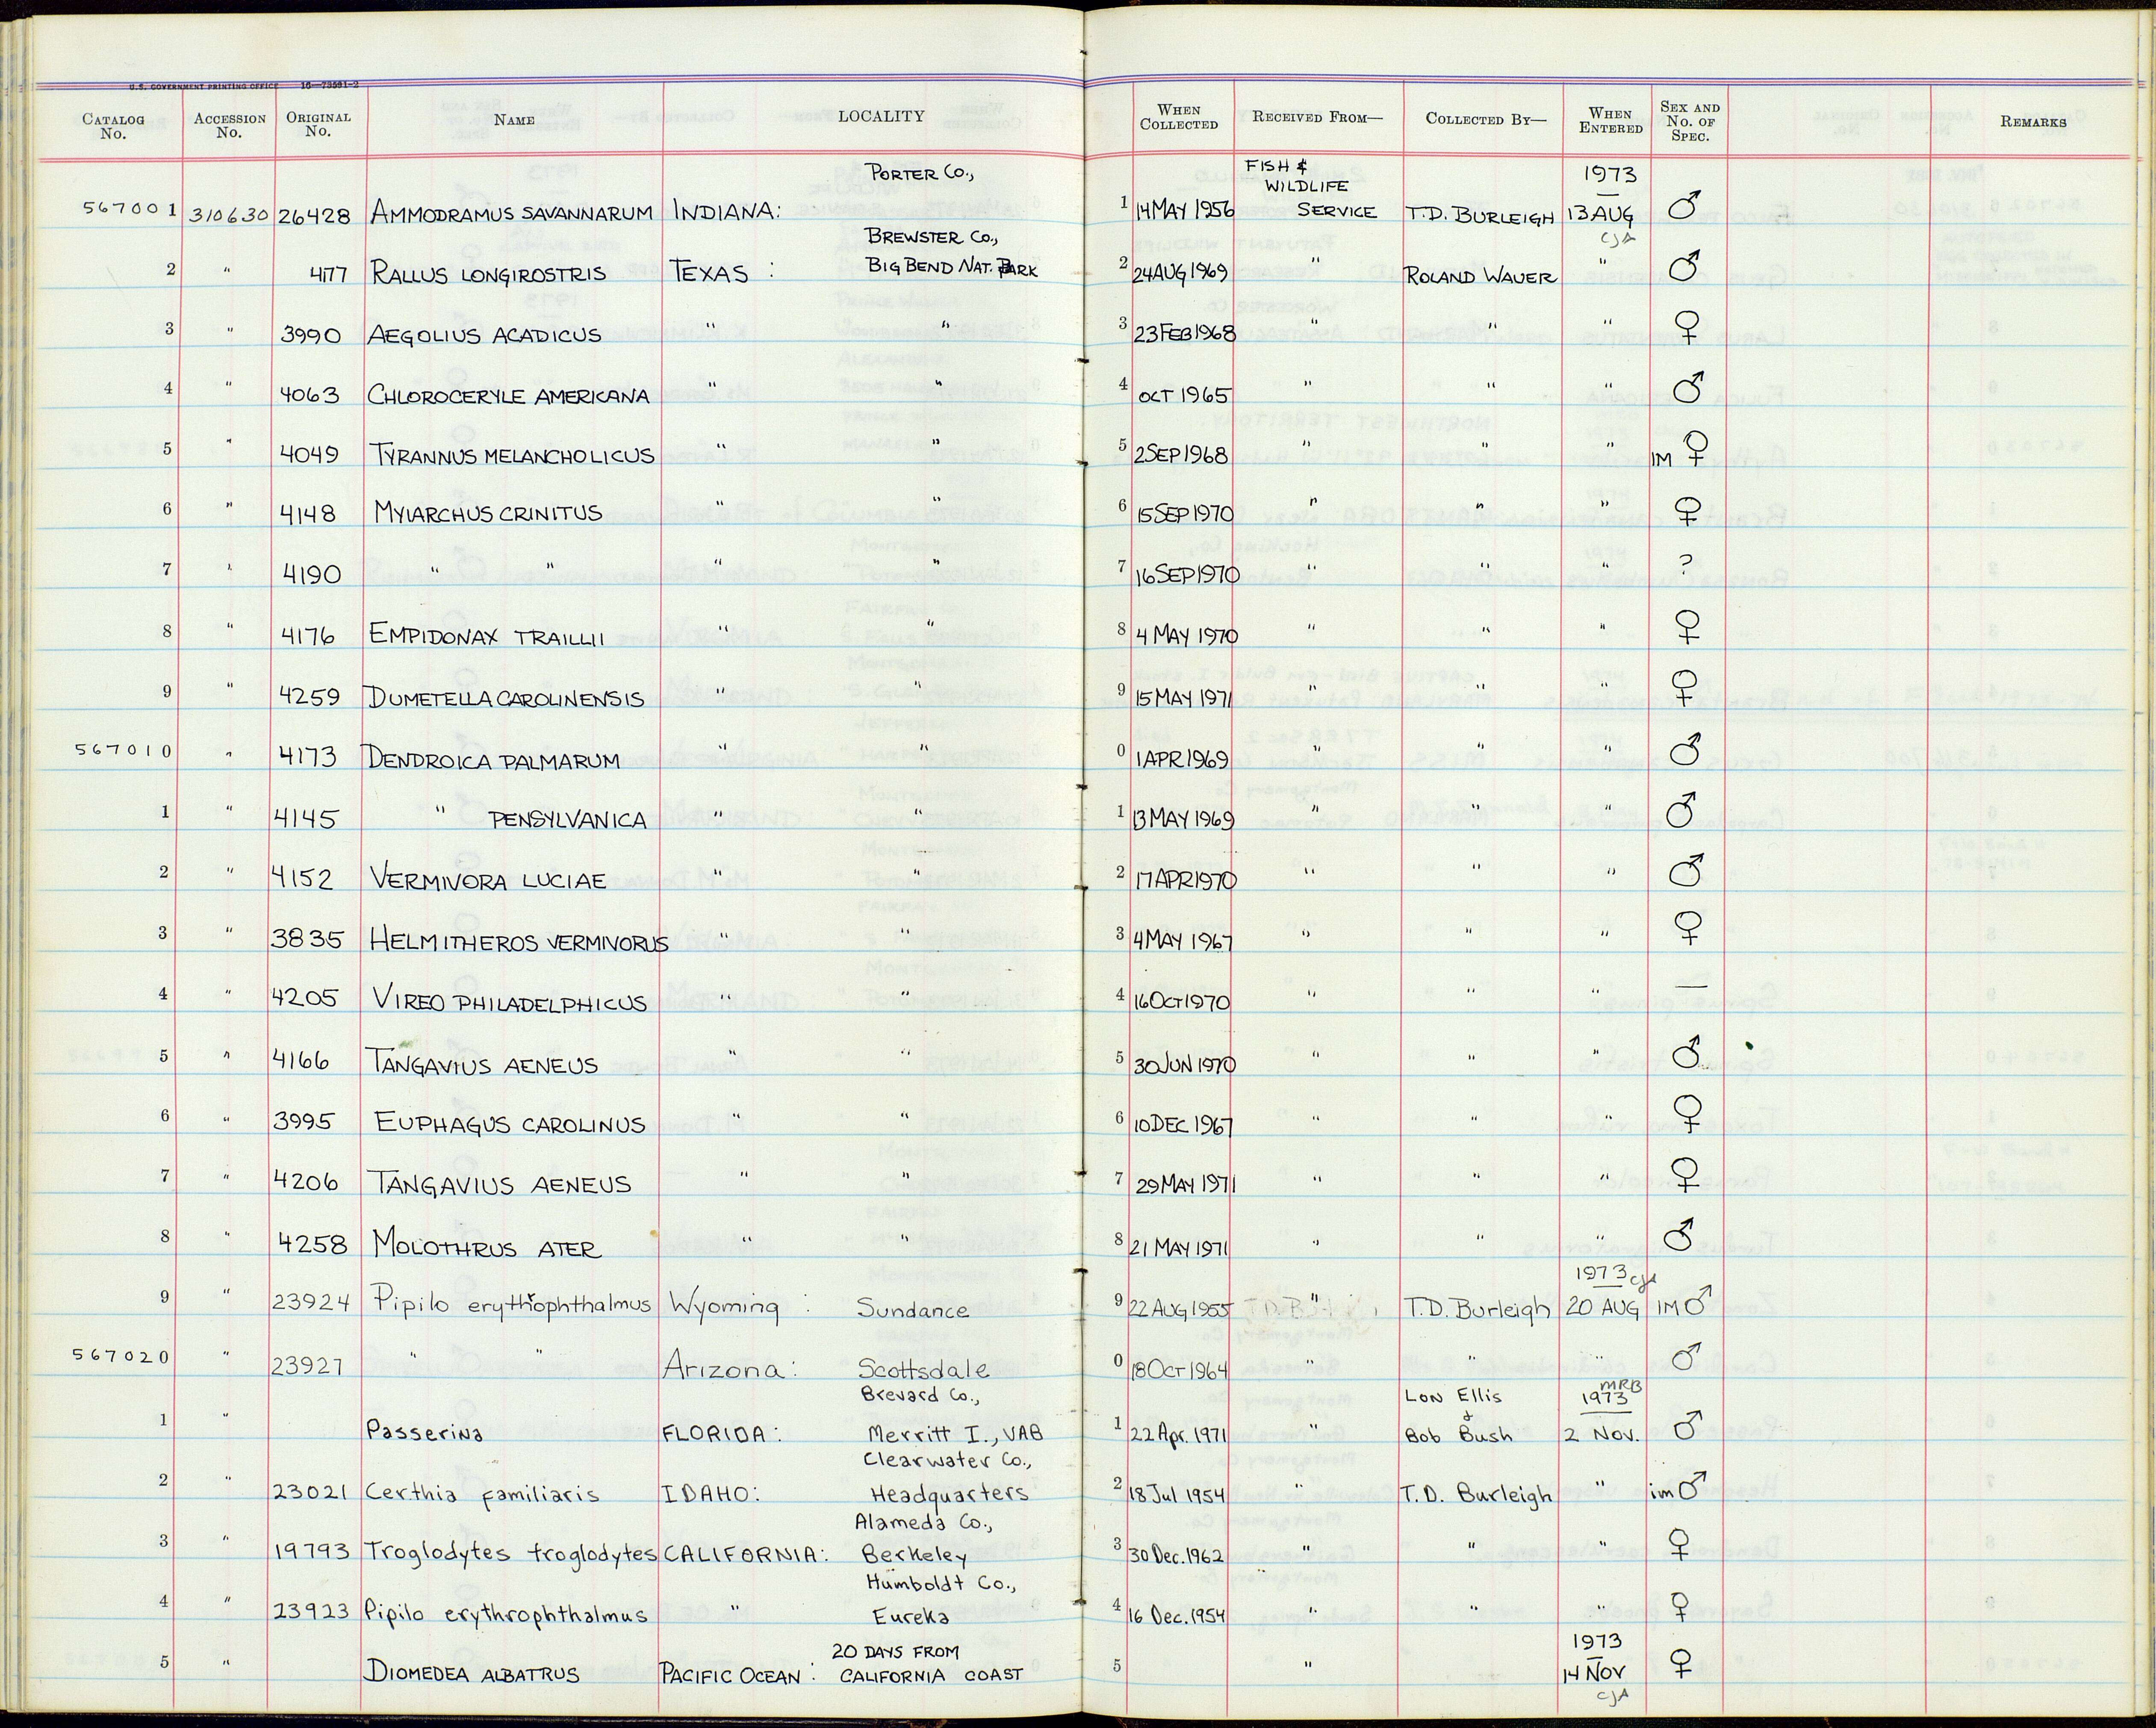 U.S. GOVERNMENT PRINTING OFFICE 16—73591-2
CATALOG No. ACCESSION No. ORIGINAL No. NAME LOCALITY WHEN COLLECTED RECEIVED FROM— COLLECTED BY— WHEN ENTERED SEX AND No. OF SPEC. REMARKS
PORTER CO., FISH & WILDLIFE 1973
567001 310630 26428 AMMODRAMUS SAVANNARUM INDIANA: 1 14 MAY 1956 SERVICE T.D. BURLEIGH 13 AUG ♂
BREWSTER CO., CJA
2 " 4177 RALLUS LONGIROSTRIS TEXAS : BIG BEND NAT. PARK 2 24 AUG 1969 " ROLAND WAUER " ♂
3 " 3990 AEGOLIUS ACADICUS " " 3 23 FEB 1968 " " " ♀
4 " 4063 CHLOROCERYLE AMERICANA " " 4 OCT 1965 " " " ♂
5 " 4049 TYRANNUS MELANCHOLICUS " " 5 2 SEP 1968 " " " IM ♀
6 " 4148 MYIARCHUS CRINITUS " " 6 15 SEP 1970 " " " ♀
7 " 4190 " " " " 7 16 SEP 1970 " " " ?
8 " 4176 EMPIDONAX TRAILLII " " 8 4 MAY 1970 " " " ♀
9 " 4259 DUMETELLA CAROLINENSIS " " 9 15 MAY 1971 " " " ♀
567010 " 4173 DENDROICA PALMARUM " " 0 1 APR 1969 " " " ♂
1 " 4145 " PENSYLVANICA " " 1 13 MAY 1969 " " " ♂
2 " 4152 VERMIVORA LUCIAE " " 2 17 APR 1970 " " " ♂
3 " 3835 HELMITHEROS VERMIVORUS " " 3 4 MAY 1967 " " " ♀
4 " 4205 VIREO PHILADELPHICUS " " 4 16 OCT 1970 " " " —
5 " 4166 TANGAVIUS AENEUS " " 5 30 JUN 1970 " " " ♂
6 " 3995 EUPHAGUS CAROLINUS " " 6 10 DEC 1967 " " " ♀
7 " 4206 TANGAVIUS AENEUS " " 7 29 MAY 1971 " " " ♀
8 " 4258 MOLOTHRUS ATER " " 8 21 MAY 1971 " " " ♂
1973 CJA
9 " 23924 Pipilo erythrophthalmus Wyoming : Sundance 9 22 AUG 1955 " T.D. Burleigh 20 AUG IM ♂
567020 " 23927 " " Arizona : Scottsdale 0 18 OCT 1964 " " " ♂
Brevard Co., Lon Ellis 1973 MRB
1 " Passerina FLORIDA : Merritt I., VAB 1 22 Apr. 1971 " & Bob Bush 2 Nov. ♂
Clearwater Co.,
2 " 23021 Certhia familiaris IDAHO: Headquarters 2 18 Jul 1954 " T.D. Burleigh " im ♂
Alameda Co.,
3 " 19793 Troglodytes troglodytes CALIFORNIA: Berkeley 3 30 Dec. 1962 " " " ♀
Humboldt Co.,
4 " 23923 Pipilo erythrophthalmus " Eureka 4 16 Dec. 1954 " " " ♀
20 DAYS FROM 1973
5 " DIOMEDEA ALBATRUS PACIFIC OCEAN : CALIFORNIA COAST 5 " 14 NOV ♀
CJA